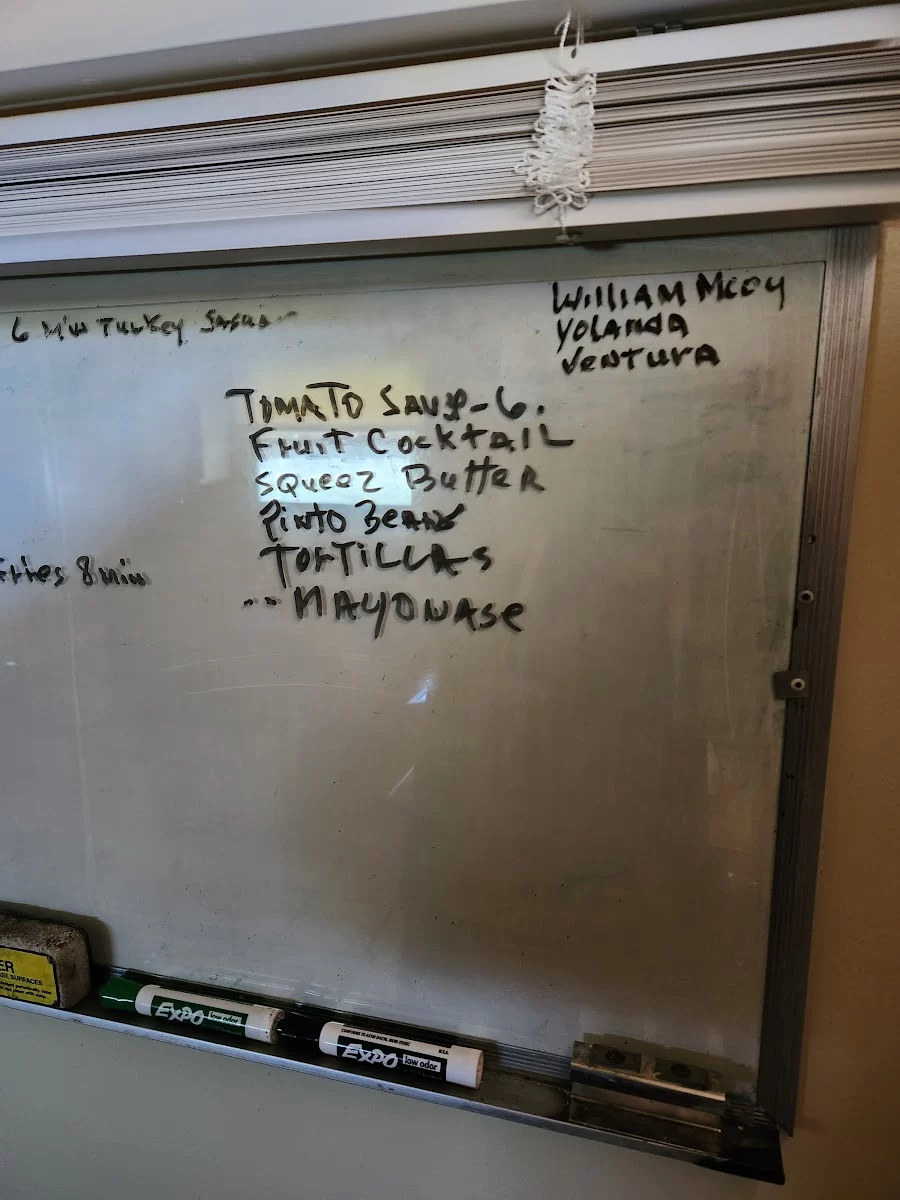 6 Min Turkey
William McCoy
Yolanda
Ventura
Tomato Saup-6.
Fruit Cocktail
Squeez Butter
Pinto Beans
Tortillas
-- Mayonase
Fries 8 min
ER
SURFACES
EXPO low odor
EXPO low odor
U.S.A.